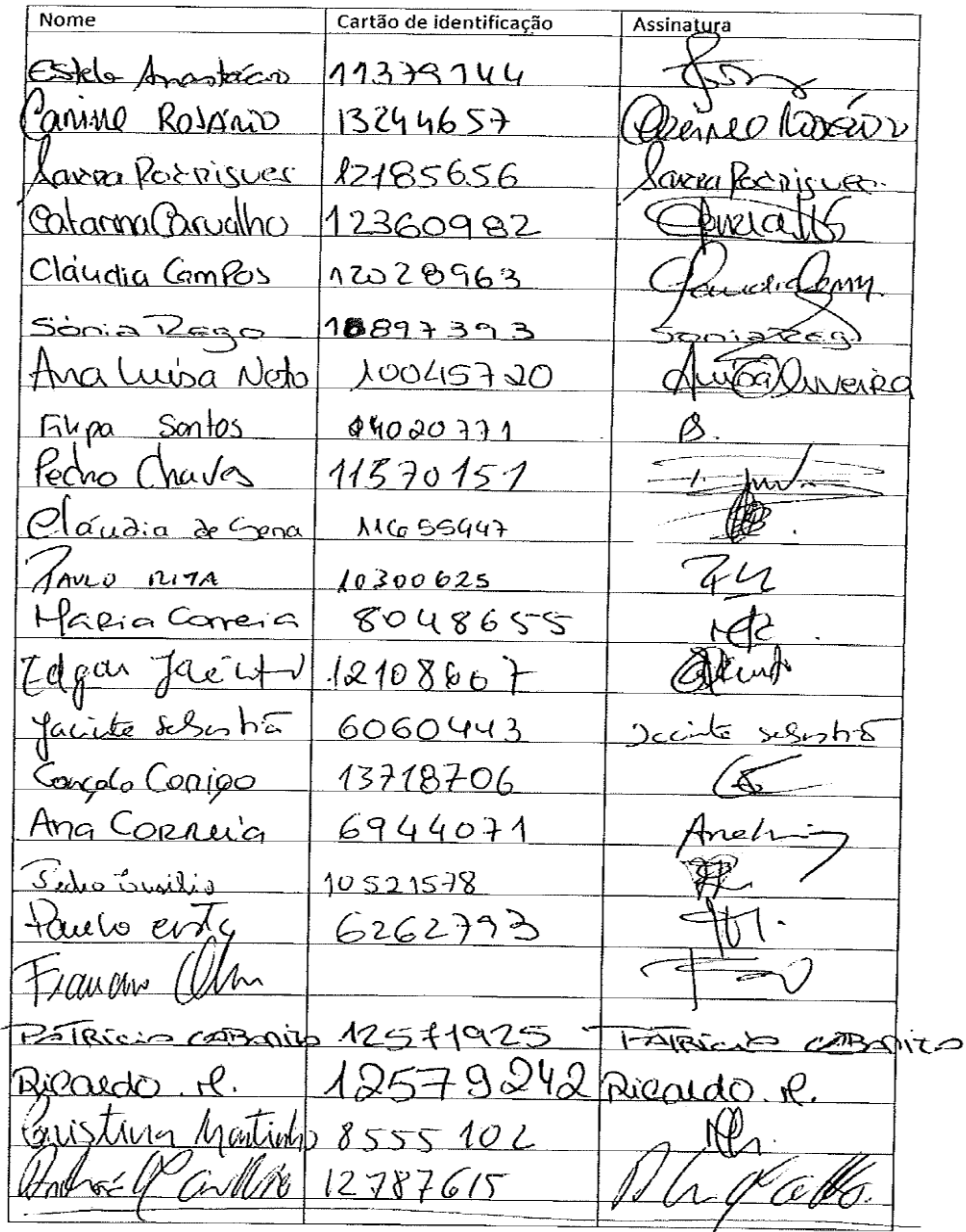 Nome Cartão de identificação Assinatura
Estela Anastácio 11379144
Carine Rosário 13244657
Sandra Rodrigues 12185656 Sandra Rodrigues
Catarina Carvalho 12360982
Cláudia Campos 12028963
Sónia Rego 10897393 Sonia Rego
Ana Luísa Neto 10045720
Filipa Santos 14020771
Pedro Chaves 11570151
Cláudia de Sena 11655947
Paulo Rita 10300625
Maria Correia 8048655
Edgar Jacinto 12108607
Jacinto Sebastião 6060443 Jacinto Sebastião
Gonçalo Corigo 13718706
Ana Correia 6944071
Pedro Basílio 10521578
Paulo 6262793
Francisco
Patrício Cabanito 12571925 Patrício Cabanito
Ricardo . R. 12579242 Ricardo . R.
Cristina Martinho 8555102
André 12787615